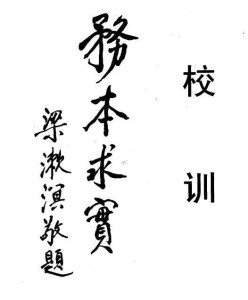 校训
務本求實
梁漱溟敬題